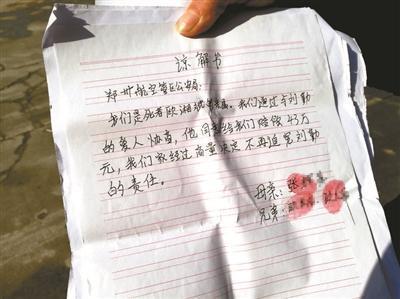 谅解书
郑州航空港区公安局:
我们是死者欧湘斌亲属。我们通过与刘勤
的家人协商,他同意给我们赔偿43万
元,我们家经过商量决定不再追究刘勤
的责任。
母亲:张
兄弟: